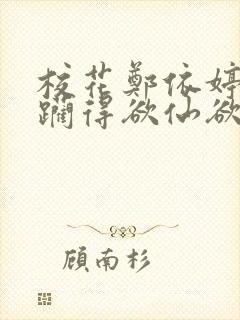 校花鄭依婷
躏得欲仙欲
顾南杉